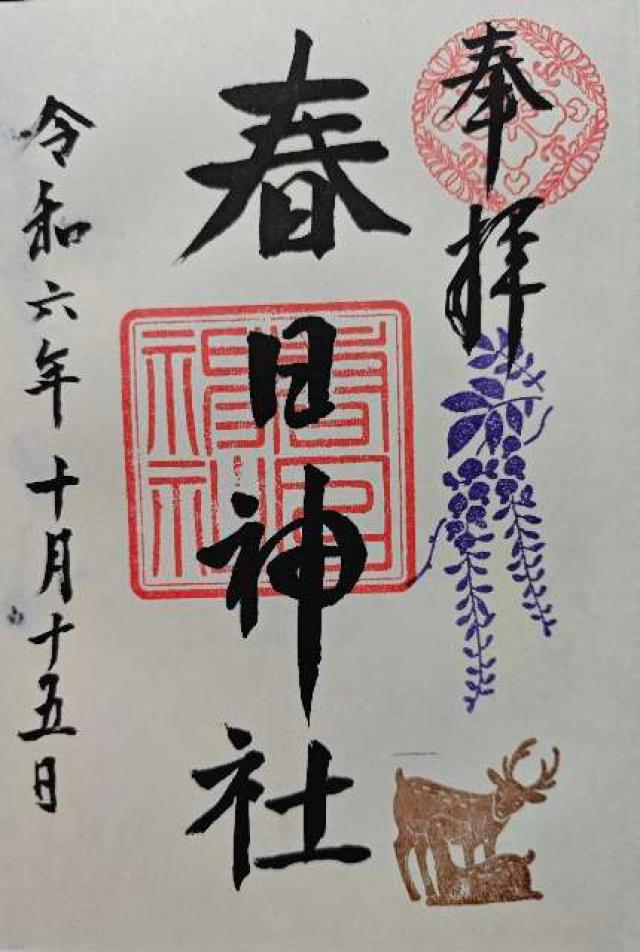 奉拝
春日神社
春日神社
令和六年十月十五日